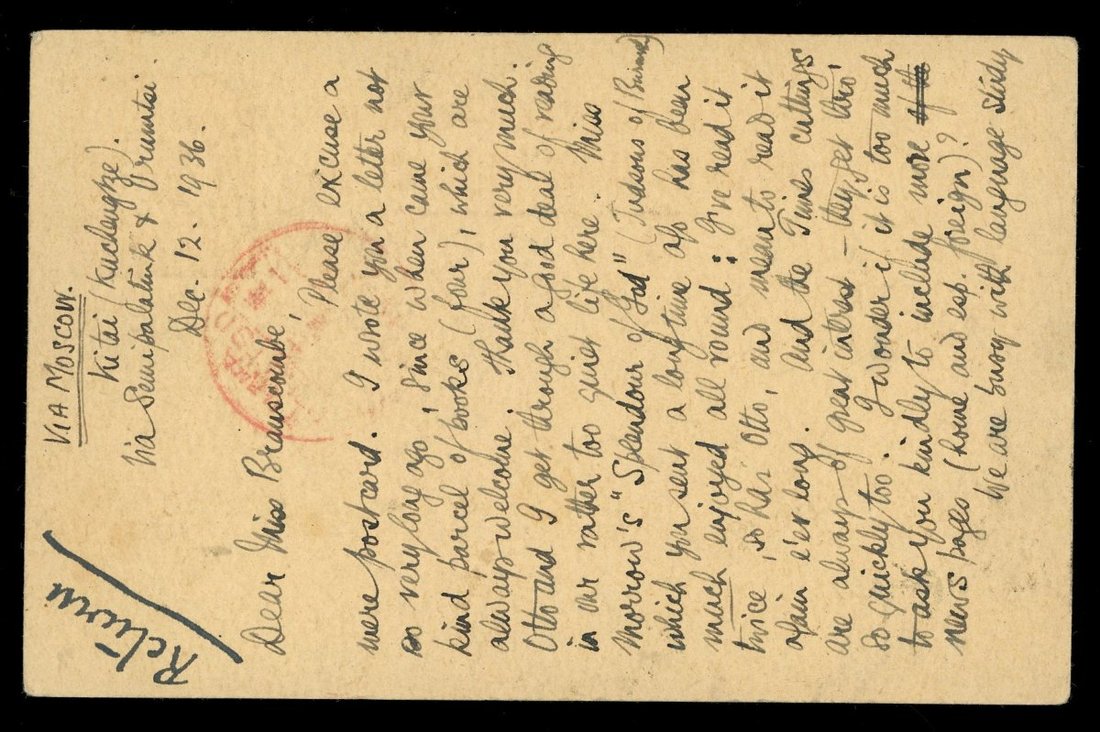 VIA MOSCOW.
Kitai (Kuchengtze).
via Semipalatinsk &
Dec. 12. 1936.
Return
Dear Miss Branscombe, Please excuse a
mere postcard. I wrote you a letter not
so very long ago, since when came your
kind parcel of books (four), which are
always welcome. Thank you very much.
Otto and I get through a good deal of reading
in our rather too quiet life here. Miss
Morrow's "Splendour of God" (Judsons of Burma)
which you sent a long time ago has been
much enjoyed all round: I've read it
twice, so has Otto, and mean to read it
again e'er long. And the Times cuttings
are always of great interest – they get thro'
so quickly too. I wonder if it is too much
to ask you kindly to include more
news pages (home and esp. foreign)?
We are busy with language study